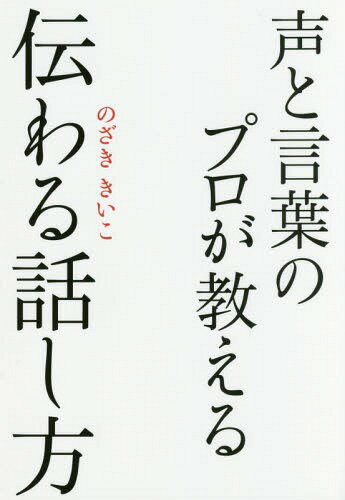 声と言葉の
プロが教える
伝わる話し方
のざき きいこ